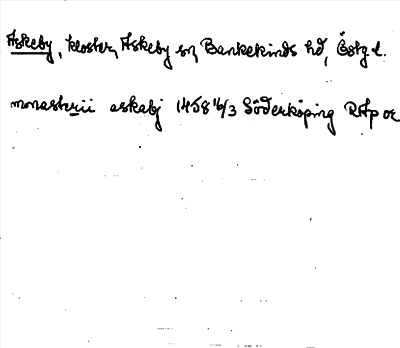 Askeby, kloster, Askeby sn, Bankekinds hd, Östg l.
monasterii askabj 1458 16/3 Söderköping RAp or